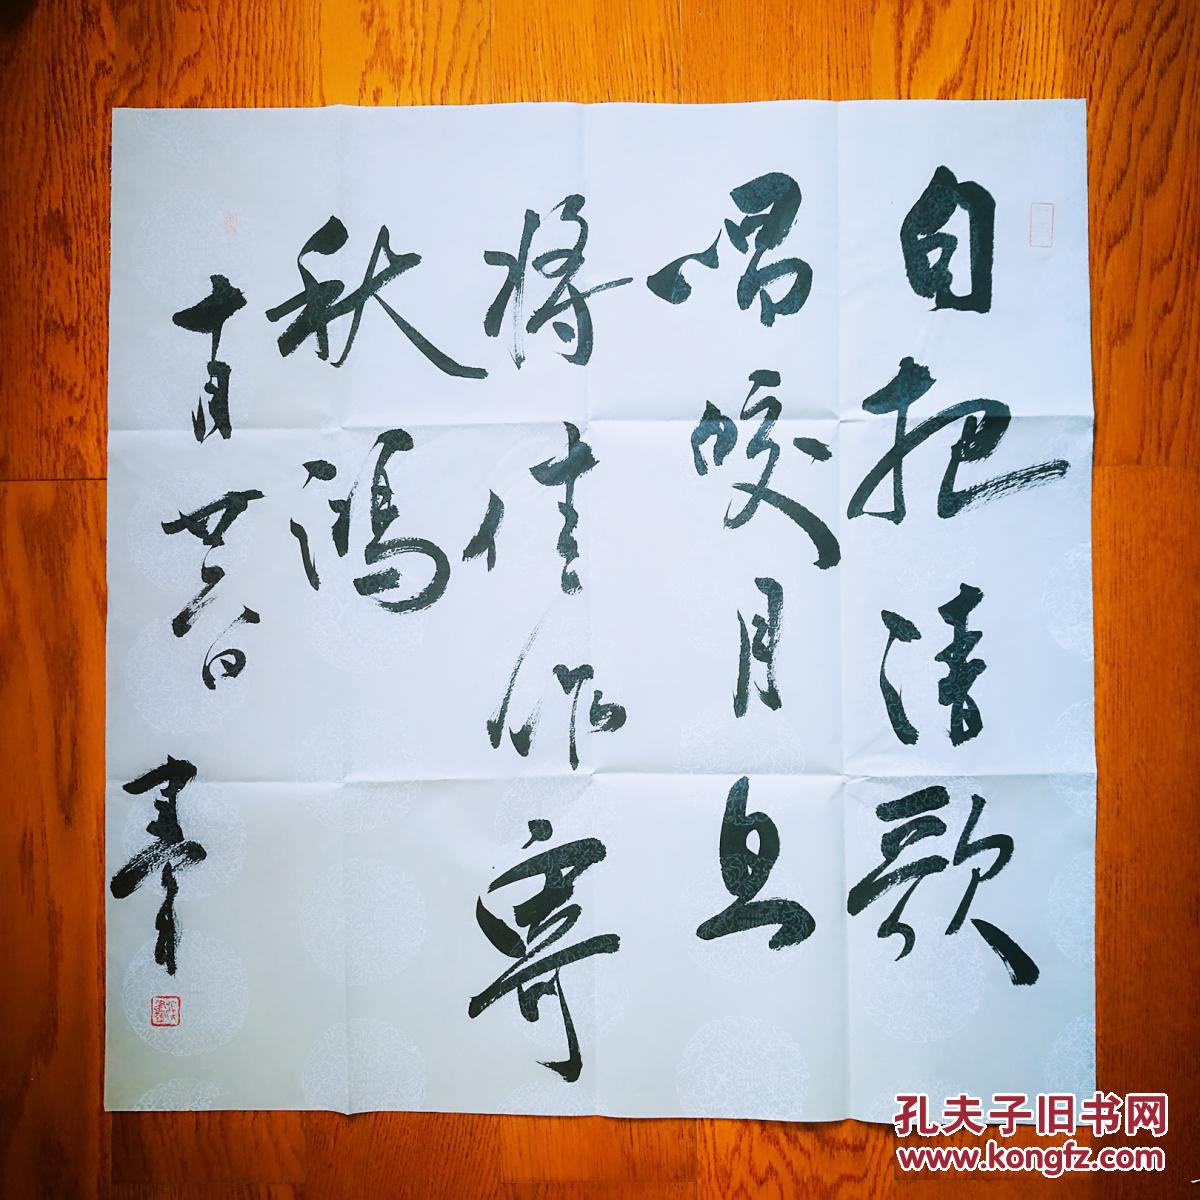 自把清歌
唱皎月且
将佳作寄
秋鸿
十月廿六日
孔夫子旧书网
www.kongfz.com